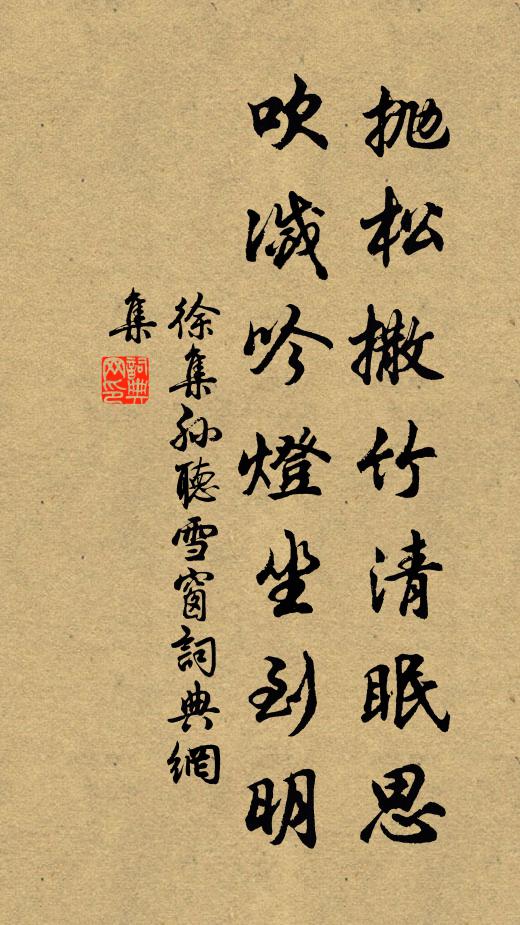 拋松撒竹清眠思
吹滅吟燈坐到明
徐集孫聽雪窗詞典網
集
詞典
网印